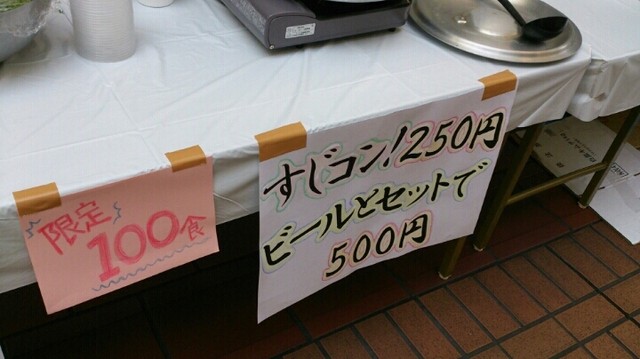 限定
100食
すじコン!250円
ビールとセットで
500円